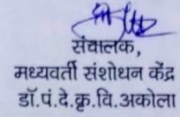 संचालक,
मध्यवर्ती संशोधन केंद्र
डॉ.पं.दे.कृ.वि.अकोला